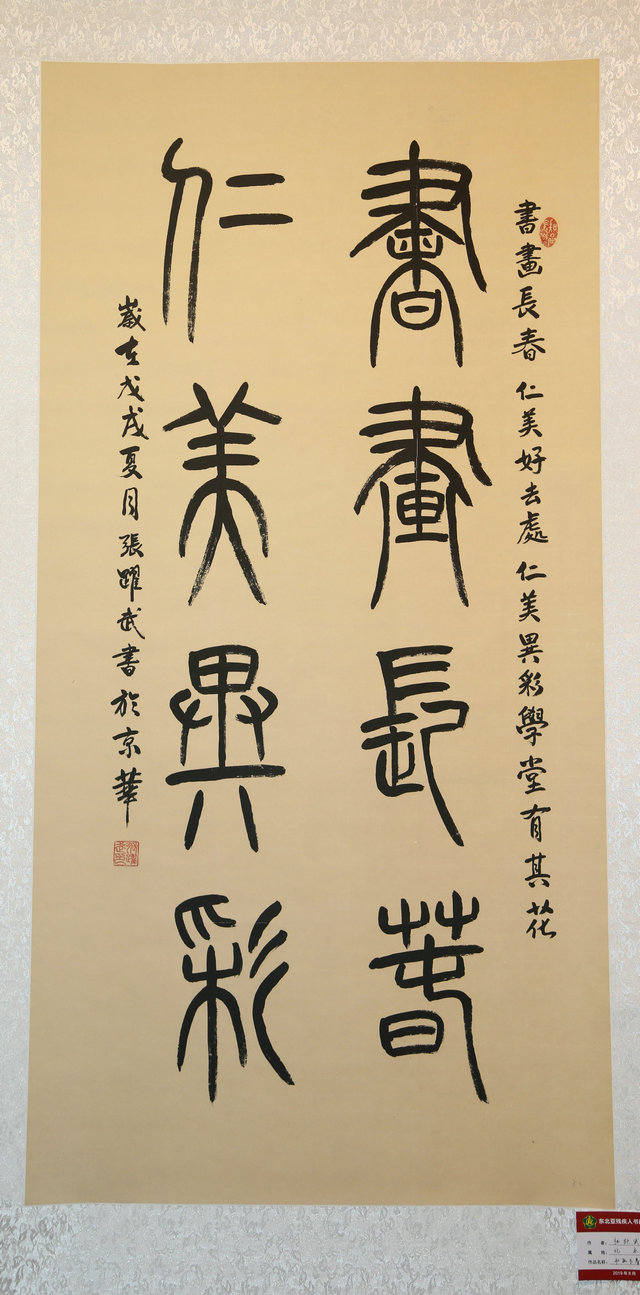 書畫長春仁美好去處仁美異彩學堂有其花
書畫長春
仁美異彩
歲在戊戌夏月張躍武書於京華
东北亚残疾人书
作 者:
属 地:
作品名称:
2019年8月